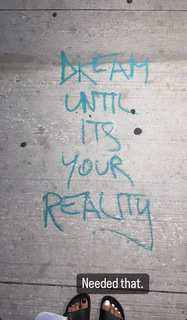 DREAM
UNTIL
ITS
YOUR
REALITY
Needed that.